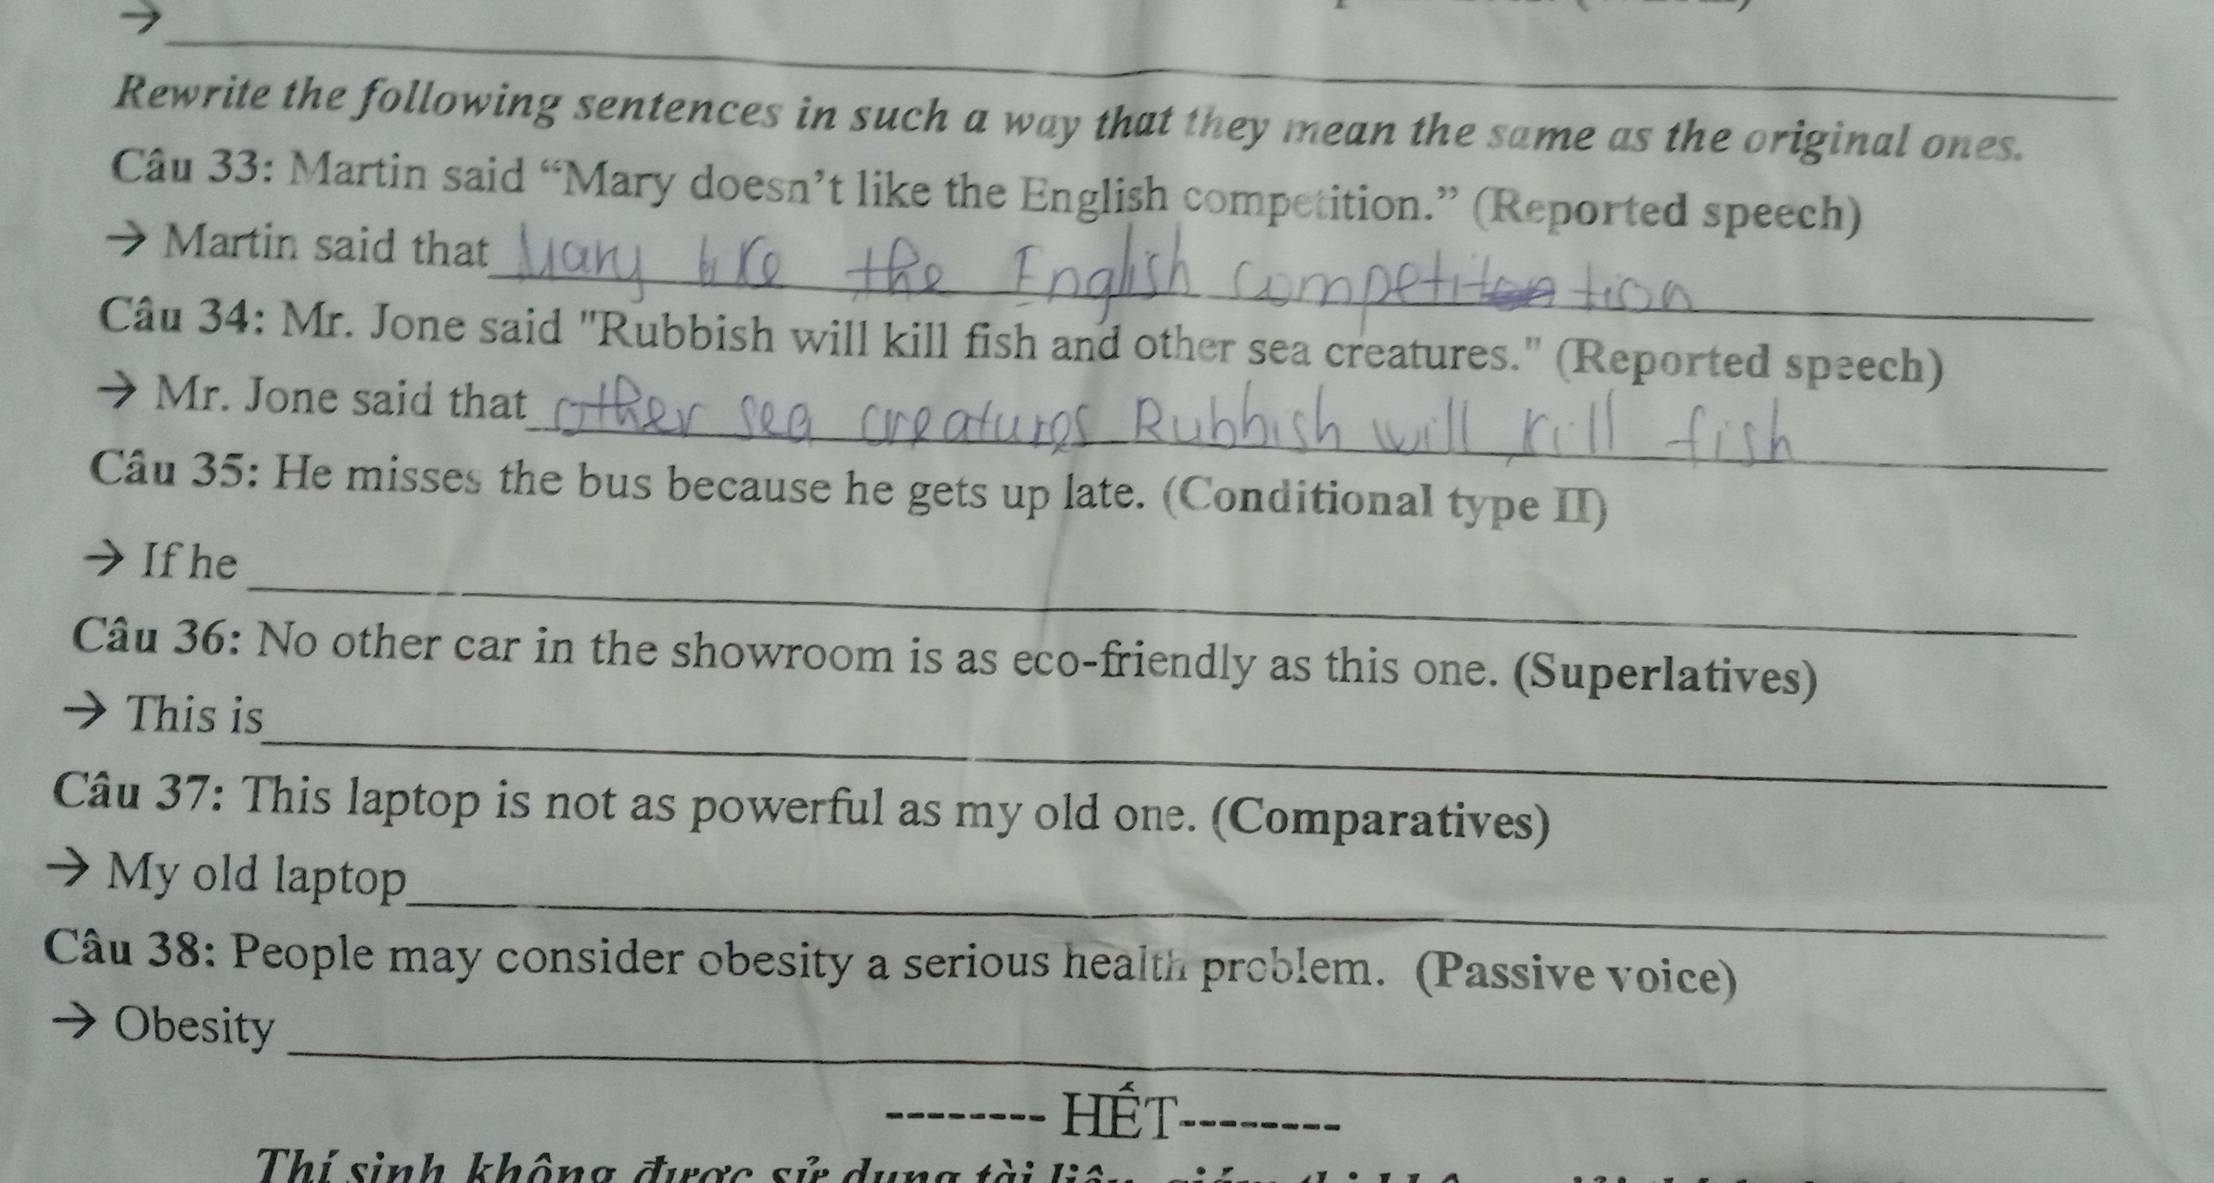 →
Rewrite the following sentences in such a way that they mean the same as the original ones.
Câu 33: Martin said “Mary doesn’t like the English competition.” (Reported speech)
→ Martin said that Mary like the English competition
Câu 34: Mr. Jone said "Rubbish will kill fish and other sea creatures." (Reported speech)
→ Mr. Jone said that other sea creatures Rubbish will kill fish
Câu 35: He misses the bus because he gets up late. (Conditional type II)
→ If he
Câu 36: No other car in the showroom is as eco-friendly as this one. (Superlatives)
→ This is
Câu 37: This laptop is not as powerful as my old one. (Comparatives)
→ My old laptop
Câu 38: People may consider obesity a serious health problem. (Passive voice)
→ Obesity
-------- HẾT--------
Thí sinh không được sử dụng tài liệu